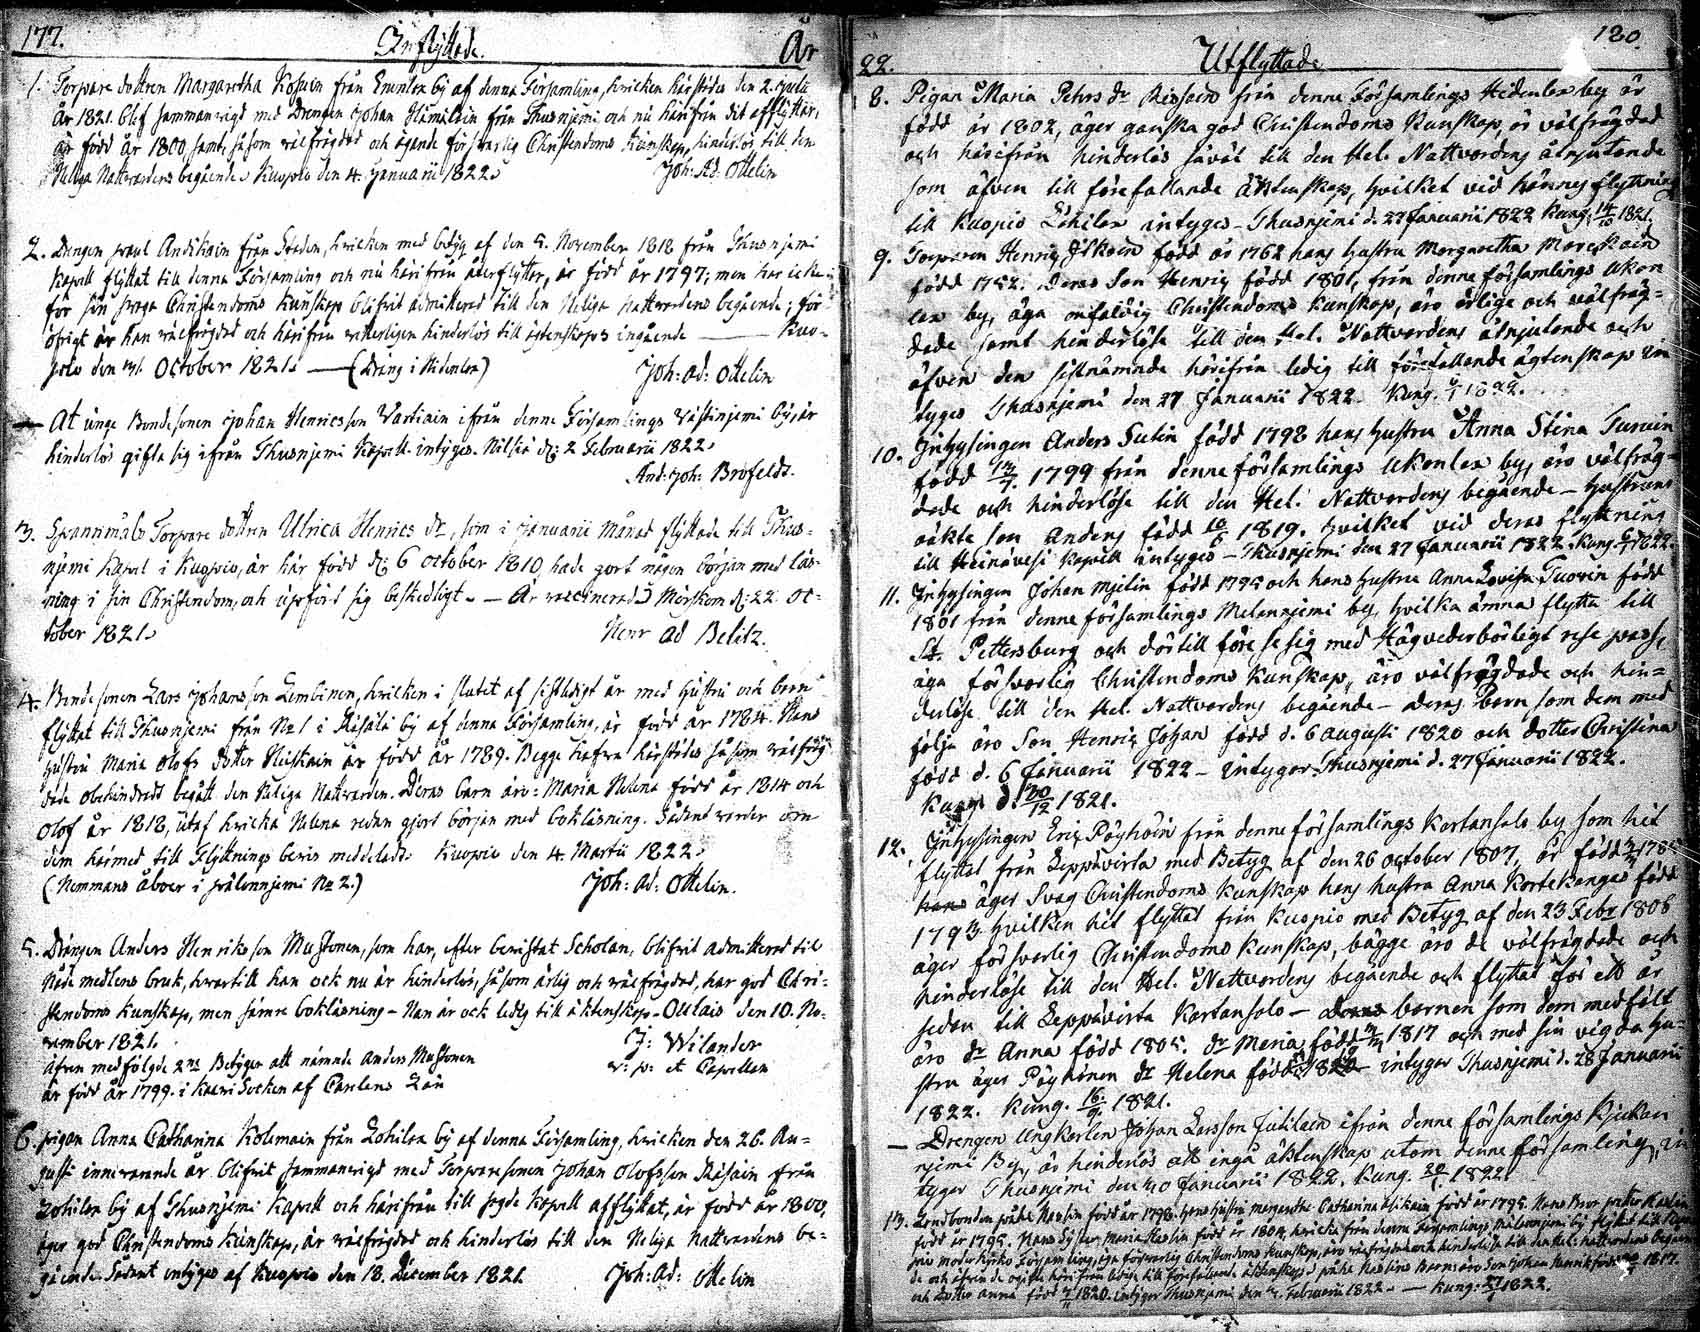 177.
Inflyttade
År
1. Torpare dottren Margaretha Kosuin från Enonlax by af denna Församling, hvicken härstädes den 2. Julii
År 1821. blef sammanvigd med Drengen Johan Hämäläin från Thusnjemi och nu härifrån dit afflyttar,
är född år 1800 samt, såsom välfrägdad och ägande försvarlig Christendoms kunskap, hinderlös till den
Heliga Nattvardens begående. Kuopio den 4. Januarii 1822.
Joh: Ad: Ottelin
2. Drengen Paul Andikain från Staden, hvicken med betyg af den 5. November 1818 från Thusnjemi
Kapell flyttat till denna Församling och nu härifrån återflytter, är född år 1797; men har icke
för sin svaga Christendoms kunskap blifvit admitterad till den Heliga nattvardens begående; för
öfrigt är han välfrägdad och härifrån veterligen hinderlös till ägtenskaps ingående — Kuo-
pio den 31. October 1821. — (Dräng i Hidenlax)
Joh: Ad: Ottelin
— At unge Bondesonen Johan Henricsson Vartiain ifrån denne Församlings Västinjemi by, är
hinderlös gifta sig ifrån Thusnjemi Kapell. intyges. Nilsiä d: 2 Februarii 1822.
And: Joh: Brofeldt.
3. Torpare dottren Ulrica Henrics dr, som i Januarii Månad flyttade till Thus-
njemi Kapel i Kuopio, är här född d: 6 October 1810, hade gort någon början med läs-
ning i sin Christendom, och upförd sig beskedligt. — Är vaccinerad. Mörskom d: 22. Oc-
tober 1821.
Henr Ad Belitz.
4. Bondesonen Lars Johansson Lembinen, hvicken i slutet af sistledigt år med hustru och barn
flyttat till Thusnjemi från No 1 i Räsälä by af denna Församling, är född år 1784. Hans
hustru Maria Olofs dotter Heiskain är född år 1789. Begge hafva härstädes såsom välfräg
dade obehindradt begått den Heliga Nattvarden. Deras barn äro: Maria Helena född år 1814 och
Olof år 1818, utaf hvicka Helena redan gjort början med bokläsning. Sådant varder om
dem härmed till Flyttnings bevis meddeladt. Kuopio den 4. Martii 1822.
(Hemmans åboer i Jälannjemi No 2.)
Joh: Ad: Ottelin.
5. Drengen Anders Henriksson Mustonen, som har, efter bevistat Scholan, blifvit admitterad til
Nådemedlens bruk, hvartill han ock nu är hinderlös, såsom ärlig och välfrägdad, har god Chri-
stendoms kunskap, men sämre bokläsning – Han är ock ledig till äktenskap – Oulais den 10. No-
vember 1821.
J: Wilander
v: p: et Capellan
Äfven medfölgde 2ne Betyger att nämnde Anders Mustonen
är född år 1799. i Kaavi Socken af Carlens Län
6. Pigan Anna Catharina Kolemain från Lohilax by af denna Församling, hvicken den 26. Au-
gusti innevarande år blifvit sammanvigd med Torparesonen Johan Olofsson Räsäin från
Lohilax by af Thusnjemi Kapell och härifrån till sagde Kapell afflyttat, är född år 1800,
äger god Christendoms kunskap, är välfrägdad och hinderlös till den Heliga Nattvardens be-
gående. Sådant intyges af Kuopio den 18. December 1821.
Joh: Ad: Ottelin
22.
Utflyttade
180.
8. Pigan Maria Pehrs dr Rissain från denne Församlings Hidenlax by är
född år 1802, äger ganska god Christendoms Kunskap, är välfrägdad
och härifrån hinderlös såväl till den Hel. Nattvardens åtnjutande
som äfven till förefallande Äktenskap, hvilket vid hännes flyttning
till Kuopio Lohilax intyges – Thusnjemi d. 27 Januarii 1822 Kung. 1821.
9. Torparen Henric född år 1762 hans hustru Margaretha
född 1752. Deras Son Henric född 1801, från denne församlings Ukon
lax by, äga enfaldig Christendoms kunskap, äro ärlige och välfräg-
dade samt hinderlöse till den Hel. Nattvardens åtnjutande och
äfven den sistnämnde härifrån ledig till förefallande ägtenskap in
tyges Thusnjemi den 27 Januarii 1822. Kung. 6/1 1822.
10. Inhysingen Anders Sutin född 1798 hans hustru Anna Stina Turuin
född 1799 från denne församlings Ukonlax by, äro välfräg-
dade och hinderlöse till den Hel. Nattvardens begående – hustruns
oäkta son Anders född 1819. hvilket vid deras flyttning
till Heinävesi kapell intyges – Thusnjemi den 27 Januarii 1822. Kung. 1822.
11. Inhysingen Johan Mjelin född 1795 och hans hustru Anna Lovisa Tuovin född
1801 från denne församlings Melannjemi by, hvilka ämna flytta till
St. Pettersburg och därtill förese sig med Högvederbörligt rese pass,
äga försvarlig Christendoms kunskap, äro välfrägdade och hin-
derlöse till den Hel. Nattvardens begående – deras barn som dem med
följa äro Son Henric Johan född d. 6 Augusti 1820 och dotter Christina
född d. 6 Januarii 1822 – intygar Thusnjemi d. 27 Januarii 1822.
Kung. d. 30/12 1821.
12. Inhysingen Eric Pöyhöin från denne församlings Kortansalo by som hit
flyttat från Leppävirta med Betyg af den 26 October 1807, är född 1785
äger svag Christendoms kunskap hans hustru Anna Kortekangas född
1793. hvilken hit flyttat från Kuopio med Betyg af den 23 Febr 1808
äger försvarlig Christendoms kunskap, bägge äro de välfrägdade och
hinderlöse till den Hel. Nattvardens begående och flyttat för ett år
sedan till Leppävirta Kortansalo – barnen som dem medföljt
äro dr Anna född 1805. dr Maria född 1817 och med sin vigda hu-
stru äger Pöyhönen dr Helena född intygar Thusnjemi d. 28 Januarii
1822. Kung. 16/9. 1821.
— Drengen Ungkarlen Johan Larsson Jutilain ifrån denne församlings
njemi By, är hinderlös att ingå äktenskap utom denne församling, in
tygar Thusnjemi den 30 Januarii 1822. Kung. 20/1 1822.
13. Landbonden född år 1798. hans hustru Margaretha Catharina född år 1795. Hans Bror
född år 1795. Hans Syster Maria född år 1804, hvicka från denna Församlings by flyttat till
moderkyrko Församling, äga försvarlig Christendoms kunskap, äro välfrägdade och hinderlöse till den Hel: nattvardens begåen
de och äfven de ogifte härifrån ledige till förefallande äktenskap. Barn äro Son Johan Henrik född 1817.
och Dotter Anna född 1820. intygar Thusnjemi den Februarii 1822. — Kung: 27/1 1822.